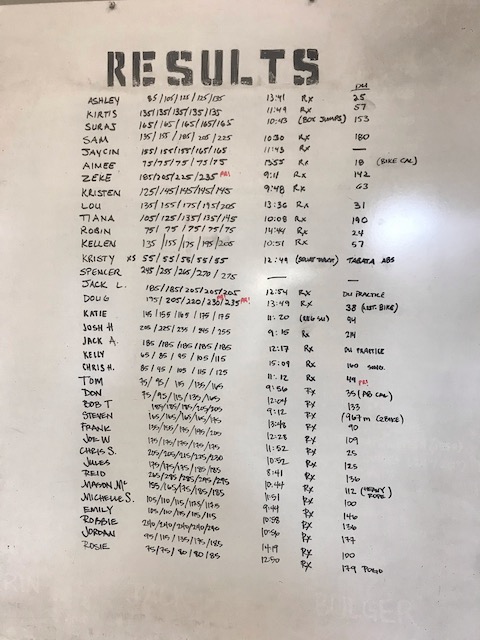 RESULTS
DU
ASHLEY 85/105/115/125/135 13:41 Rx 25
KIRTIS 135/135/135/135/135 11:49 Rx 57
SURAJ 165/165/165/165/165 10:43 (BOX JUMPS) 153
SAM 135/155/185/205/225 10:30 Rx 180
JAYCIN 155/155/155/165/165 11:43 Rx —
AIMEE 75/75/75/75/75 13:55 Rx 18 (BIKE CAL)
ZEKE 185/205/225/235 PR! 9:11 Rx 142
KRISTEN 125/145/145/145/145 9:48 Rx 63
LOU 135/155/175/195/205 13:36 Rx 31
TIANA 105/125/135/135/145 10:08 Rx 190
ROBIN 75/75/75/75/75 14:44 Rx 24
KELLEN 135/155/175/195/205 10:51 Rx 57
KRISTY xs 55/55/55/55/55 12:49 TABATA ABS
SPENCER 245/255/265/270/275 — —
JACK L. 185/185/205/205/205 12:54 Rx DU PRACTICE
DOUG 175/205/220/230/235 PR! 13:49 Rx 38 (BIKE)
KATIE 145/155/165/175/175 11:20 94
JOSH H 205/225/235/245/255 9:15 Rx 214
JACK A. 185/185/185/185/185 12:17 Rx DU PRACTICE
KELLY 65/85/95/105/115 15:09 Rx 160 SING.
CHRIS H. 85/95/105/115/125 11:12 Rx 49 PR!
TOM 75/95/115/135/165 9:56 Rx 35 (AB CAL)
DON 75/95/115/135/165 12:04 Rx 133
BOB T 185/185/185/205/205 9:12 Rx (967m C2BIKE)
STEVEN 165/165/165/165/175 13:48 Rx 90
FRANK 135/155/175/195/205 12:28 Rx 109
JOE W 175/175/175/175/175 11:52 Rx 25
CHRIS S. 205/205/215/225/230 10:52 Rx 125
JULES 175/175/175/185/185 8:41 Rx 136
REID 265/285/285/295/295 10:44 Rx 112 (HEAVY ROPE)
MASON Mc 155/165/175/185/185 10:51 Rx 100
MICHELLE S. 105/110/115/115/115 9:44 Rx 146
EMILY 105/110/115/115/115 10:58 Rx 136
ROBBIE 240/240/240/240/240 10:56 Rx 177
JORDAN 95/115/135/175/185 14:19 Rx 100
ROSIE 75/75/80/80/85 12:50 Rx 179 POGO